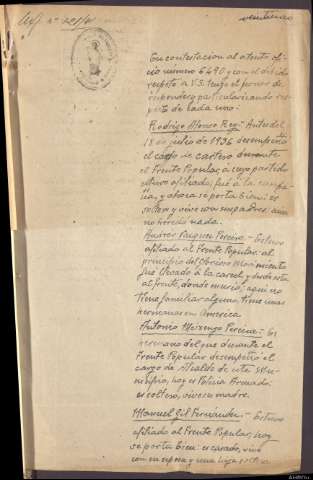 En contestacion al atento ofi-
cio número 6490 y con el debido
respeto a V.S. tengo el honor de
responder, particularizando res-
pecto de cada uno.
Rodrigo Alonso Rey.- Antes del
18 de julio de 1936 desempeñó
el cargo de cartero durante
el Frente Popular, a cuyo partido
estuvo afiliado, fué a la
y ahora se porta bien: es
soltero y vive con su padre, aun
no heredó nada.
Andres Vazquez Pereira.- Estuvo
afiliado al Frente Popular. al
principio del Glorioso Movimiento
fue llevado a la carcel y desde esta
al frente, donde murió; aqui no
tiene familiar alguno, tiene unas
hermanas en America
Antonio Pereira.- Es
hermano del que durante el
Frente Popular desempeñó el
cargo de Alcalde de este Mu-
nicipio, hoy es Policia Armada:
es soltero, vive su madre.
Manuel Gil Fernandez.- Estuvo
afiliado al Frente Popular, hoy
se porta bien: es casado, vive
con su esposa y una hija soltera